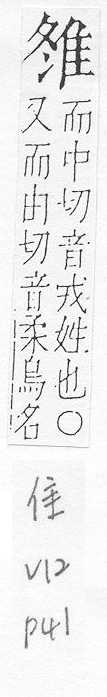 而中切音戎姓也〇
又而由切音柔鳥名
隹
V12
p41